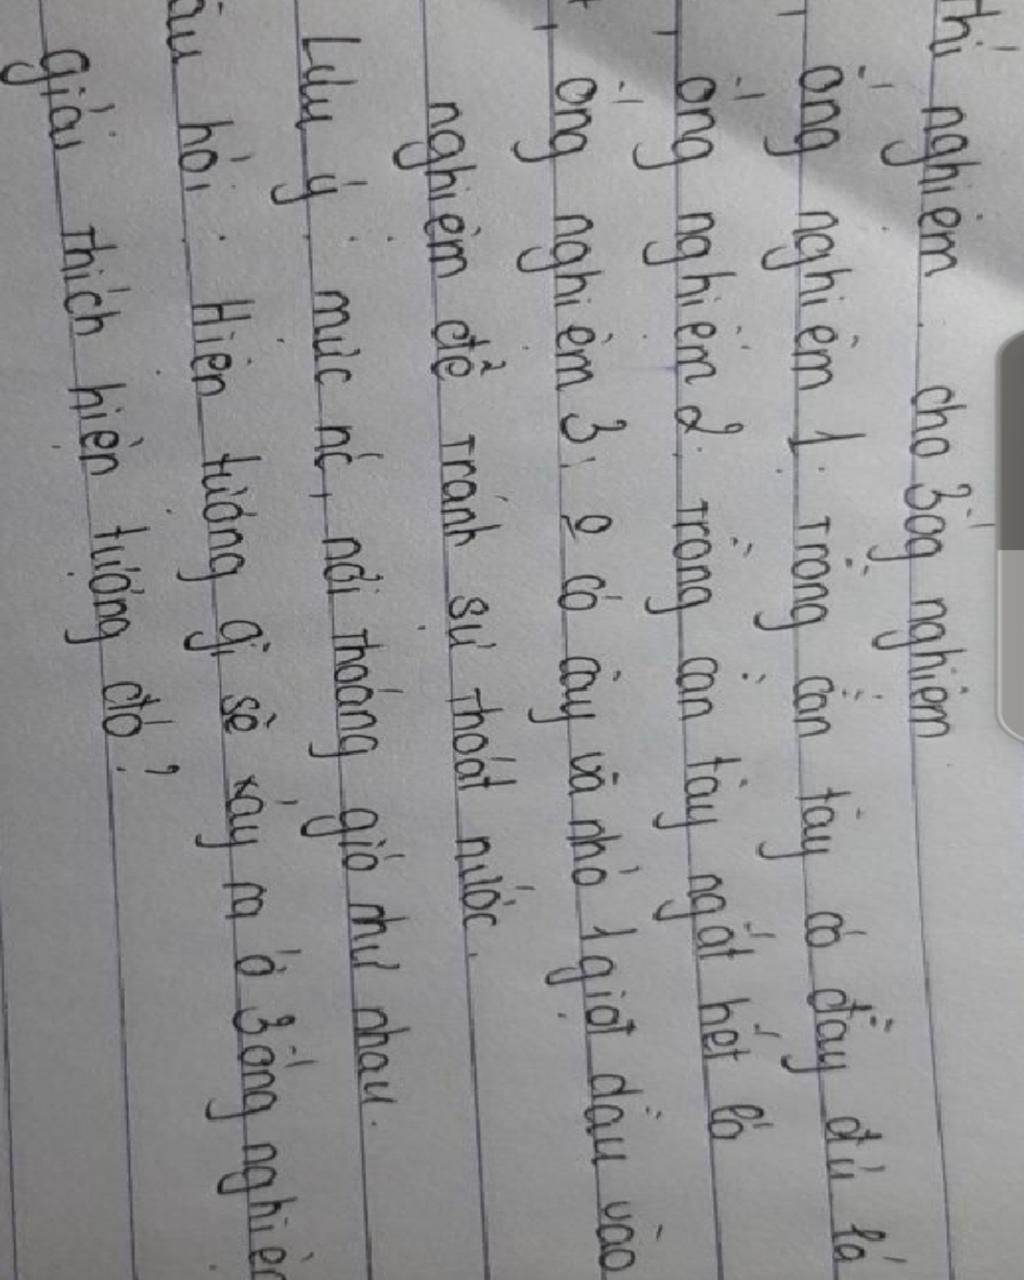 Thí nghiệm: cho 3 ống nghiệm
- ống nghiệm 1: Trồng cần tây có đầy đủ lá
- ống nghiệm 2: Trồng cần tây ngắt hết lá
- ống nghiệm 3: ko có cây và nhỏ 1 giọt dầu vào
nghiệm để tránh sự thoát nước.
Lưu ý: mức nc, nơi thoáng gió như nhau.
câu hỏi: Hiện tượng gì sẽ xảy ra ở 3 ống nghiệm
giải thích hiện tượng đó?